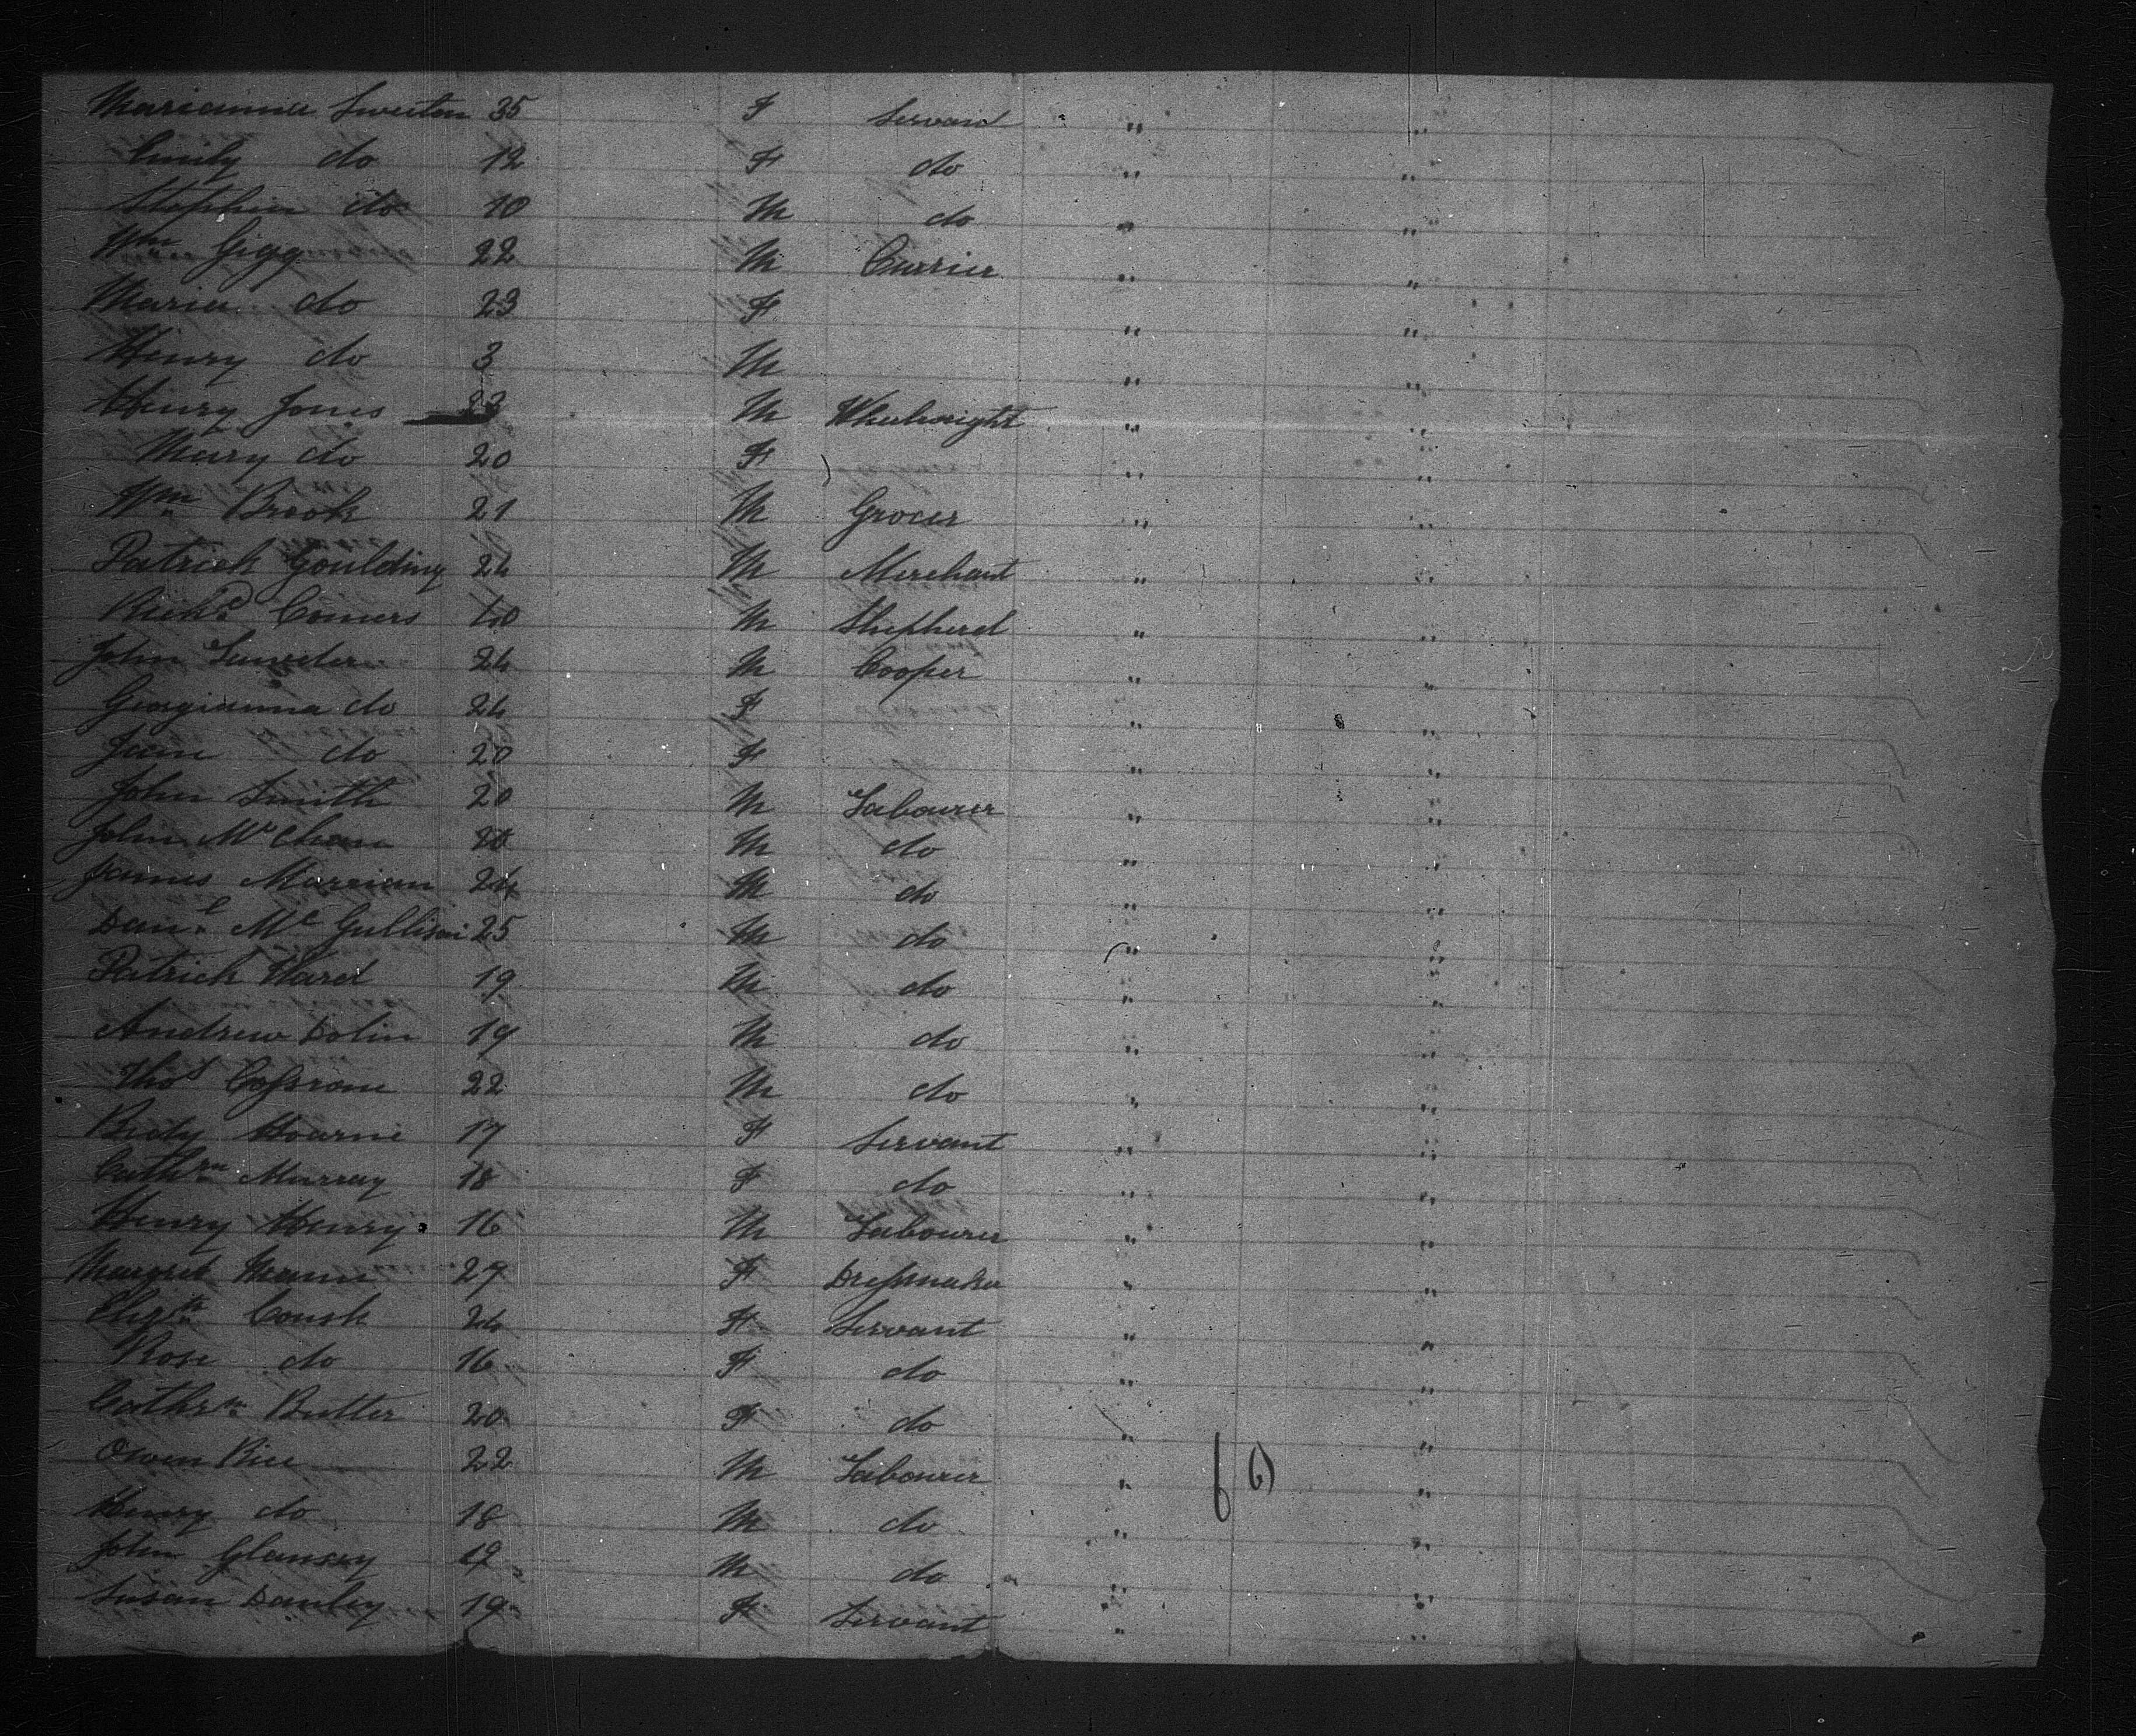 Marianna Sweeten 35 F Servand " "
Emily do 12 F do " "
Stephen do 10 M do " "
Wm Gigg 22 M Currier " "
Maria do 23 F " "
Henry do 3 M " "
Henry Jones 23 M Wheelwright " "
Mary do 20 F " "
Wm Brook 21 M Grocer " "
Patrick Goulding 24 M Merchant " "
Richd Comers 40 M Shepherd " "
John 24 M Cooper " "
Georgianna do 24 F " "
Jam do 20 F " "
John Smith 20 M Labourer " "
John 20 M do " "
James 24 M do " "
Danl Mc Gullison 25 M do " "
Patrick Ward 19 M do " "
Andrew Dolin 19 M do " "
Thos Cossrone 22 M do " "
Bidy Hourne 17 F Servant " "
Cathrn Murray 18 F do " "
Henry Henry 16 M Labourer " "
Margret Mann 27 F Dressmaker " "
Elizth Coush 24 F Servant " "
Rose do 16 F do " "
Cathrn Butler 20 F do " "
Owen Rice 22 M Labourer " "
Henry do 18 M do " "
John Glansey 19 M do " "
Susan Danley 19 F Servant " "